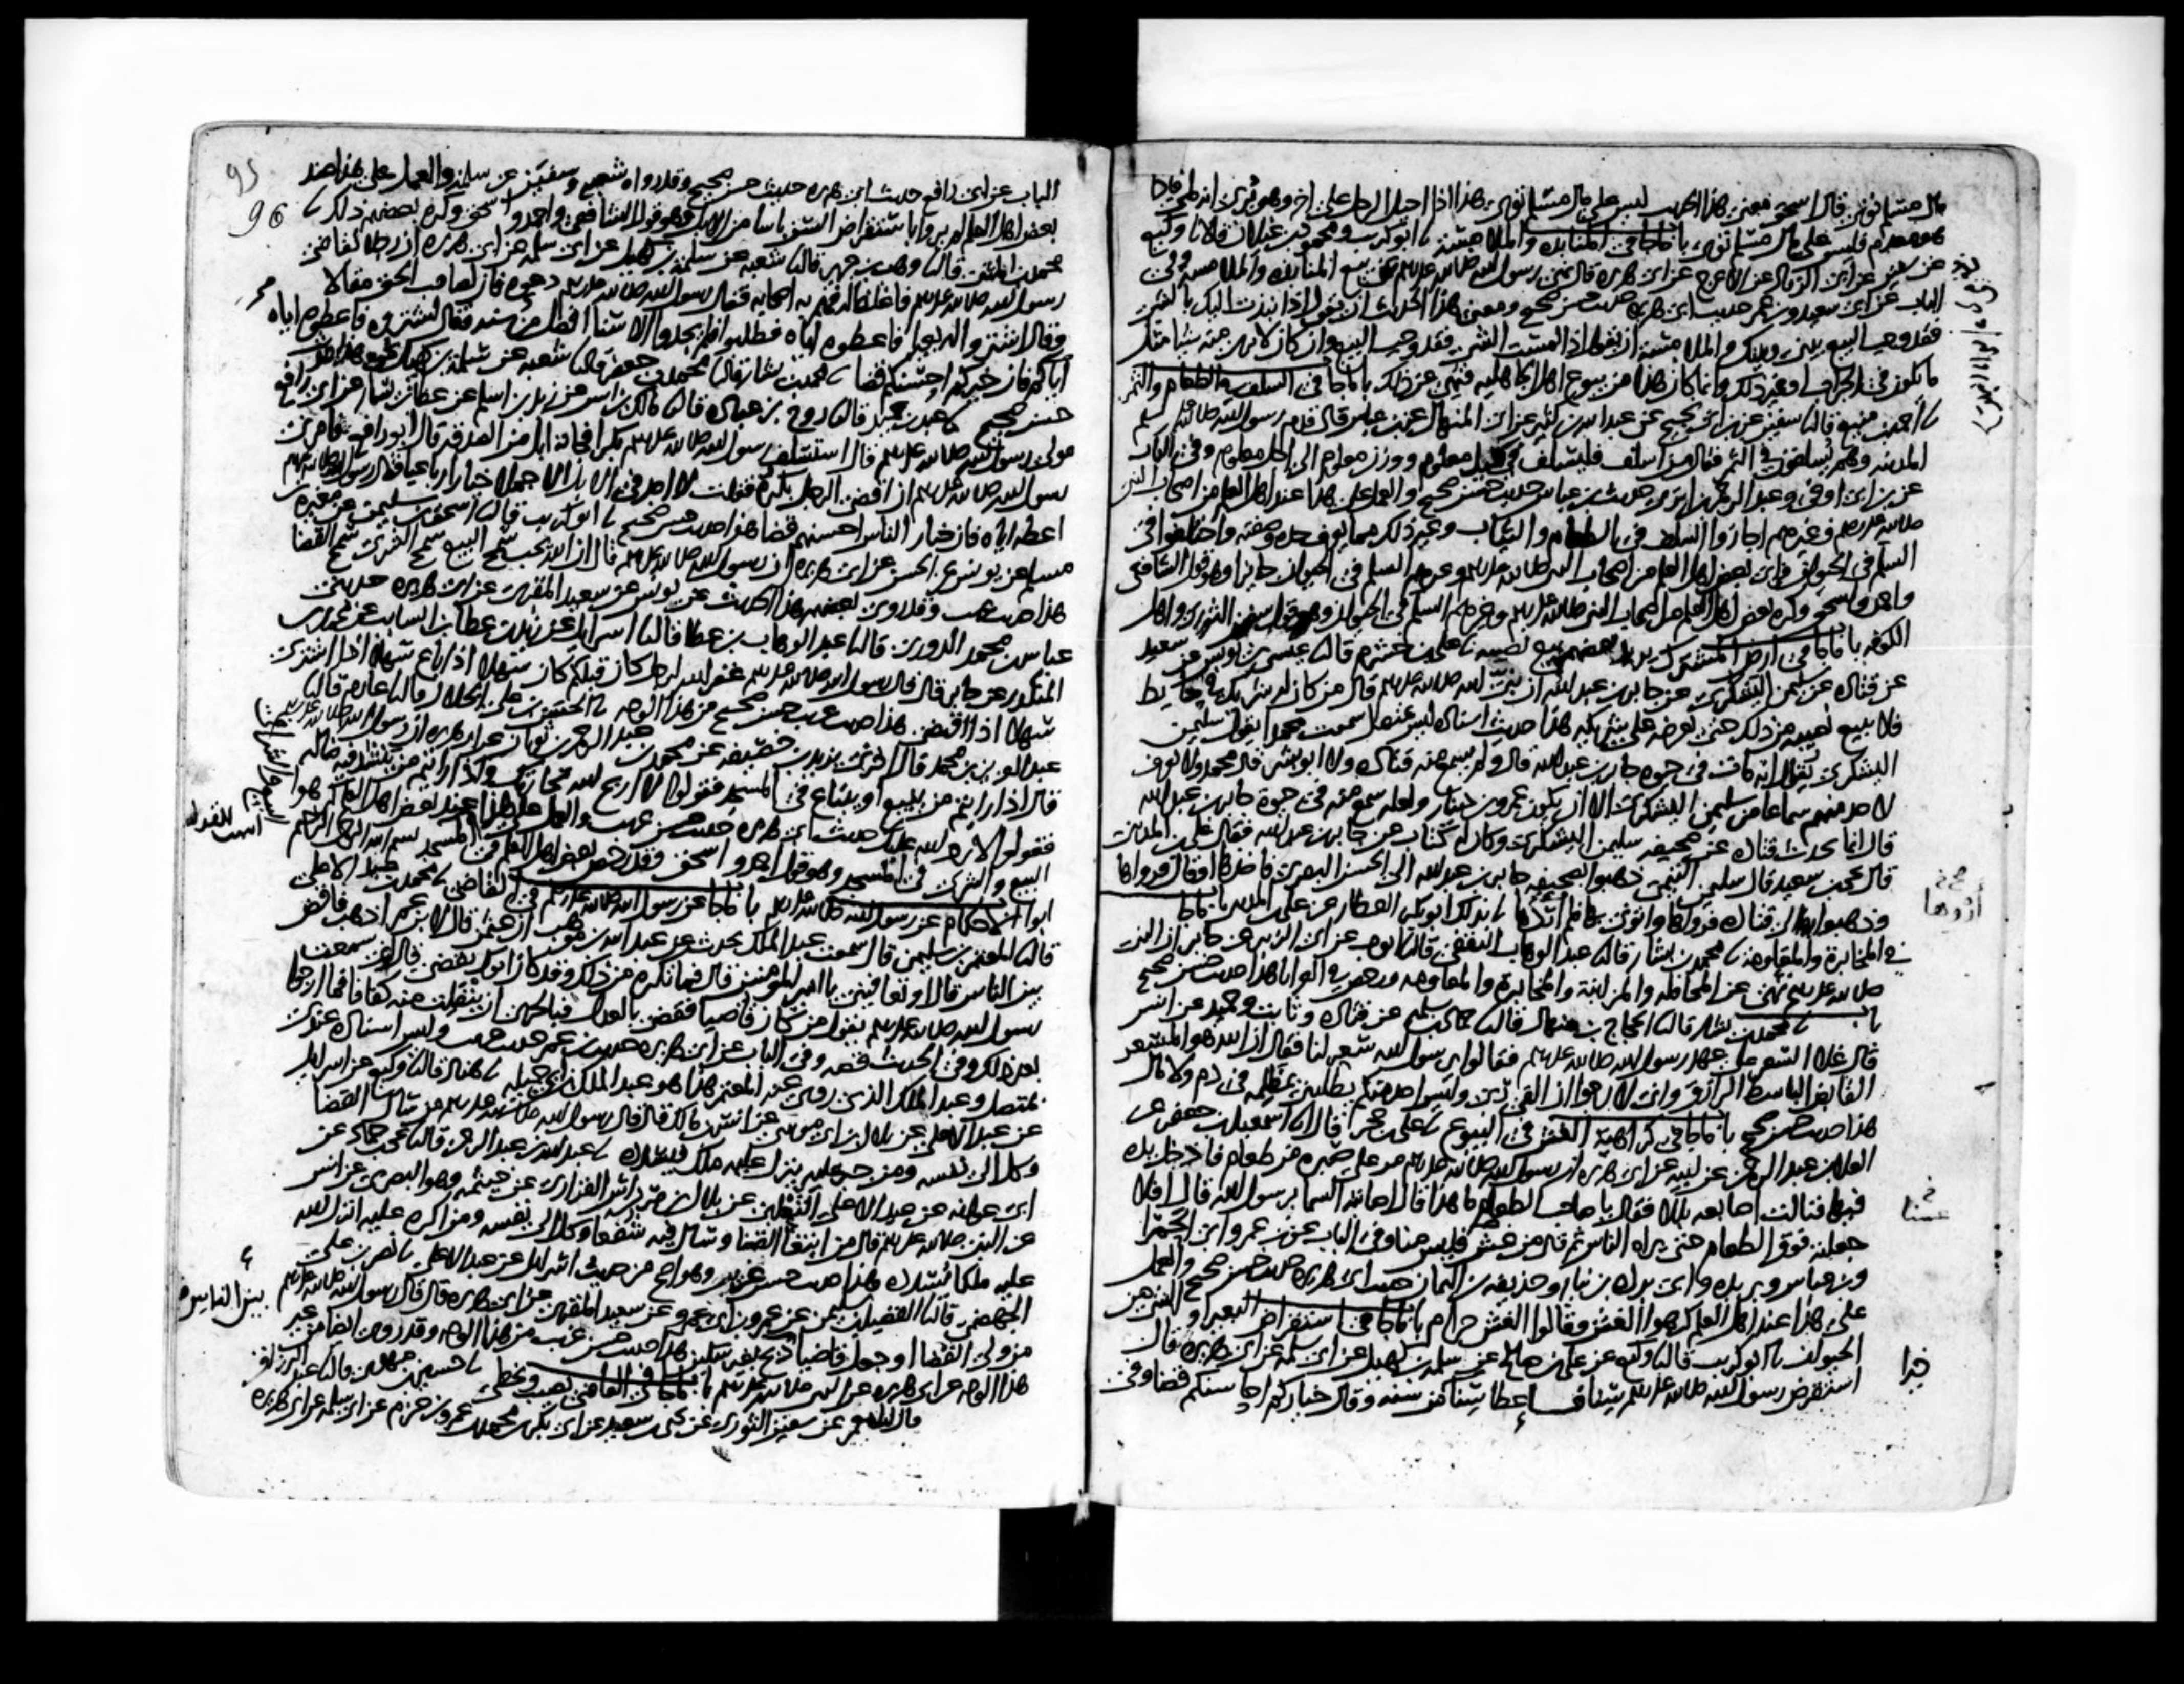 مال مسلم توى قال اسحق معنى هذا الحديث ليس على مال مسلم توى هذا اذا احيل الرجل على اخر وهو يرى انه ملى فاذا
هو معدم فليس على مال مسلم توى باب ما جا فى المنابذه والملامسة نا ابو كريب ومحمود بن غيلان قالا نا وكيع
عن سفين عن ابى الزناد عن الاعرج عن ابى هريره قال نهى رسول الله صلى الله عليه وسلم عن بيع المنابذه والملامسه وفى
الباب عن ابى سعيد وبن عمر حديث ابى هريره حديث حسن صحيح ومعنى هذا الحديث ان يقول اذا نبذت اليك بالشى
فقد وجب البيع بينى وبينك والملامسة ان يقول اذا لمست الشى فقد وجب البيع وان كان لا يرى منه شيا مثل
ما يكون فى الجراب او غير ذلك وانما كان هذا من بيوع اهل الجاهليه فنهى عن ذلك باب ما جا فى السلف فى الطعام والتمر
نا احمد بن منيع قال نا سفين عن ابن ابى نجيح عن عبد الله بن كثير عن ابى المنهال عن بن عباس قال قدم رسول الله صلى الله عليه وسلم
المدينه وهم يسلفون فى الثمر فقال من اسلف فليسلف فى كيل معلوم ووزن معلوم الى اجل معلوم وفى الباب
عن بن ابى اوفى وعبد الرحمن بن ابزى وحديث بن عباس حديث حسن صحيح والعمل على هذا عند اهل العلم من اصحاب النبى
صلى الله عليه وسلم وغيرهم اجازوا السلف فى الطعام والثياب وغير ذلك مما يعرف حده وصفته واختلفوا فى
السلم فى الحيوان فراى بعض اهل العلم من اصحاب النبى صلى الله عليه وسلم وغيرهم السلم فى الحيوان جايزا وهو قول الشافعى
واحمد واسحق وكره بعض اهل العلم من اصحاب النبى صلى الله عليه وسلم وغيرهم السلم فى الحيوان وهو قول سفين الثورى واهل
الكوفه باب ما جا فى ارض المشترك يريد بعضهم بيع نصيبه نا على بن خشرم قال نا عيسى بن يونس عن سعيد
عن قتاده عن سليمن اليشكرى عن جابر بن عبد الله ان نبى الله صلى الله عليه وسلم قال من كان له شريك فى حايط
فلا يبيع نصيبه من ذلك حتى يعرضه على شريكه هذا حديث اسناده ليس بمتصل سمعت محمدا يقول سليمن
اليشكرى يقال انه مات فى حيوة جابر بن عبد الله قال ولم يسمع منه قتاده ولا ابو بشر قال محمد ولا نعرف
لاحد منهم سماعا من سليمن اليشكرى الا ان يكون عمرو بن دينار ولعله سمع منه فى حيوة جابر بن عبد الله
قال انما يحدث قتاده عن صحيفه سليمن اليشكرى وكان له كتاب عن جابر بن عبد الله فقال على بن المدينى
قال يحيى بن سعيد قال سليمن التيمى ذهبوا بصحيفه جابر بن عبد الله الى الحسن البصرى فاخذها او قال فرواها
وذهبوا بها الى قتاده فرواها واتونى بها فلم اردها نا بذلك ابو بكر العطار عن على بن المدينى باب ما جا
فى المخابرة والمعاومة نا محمد بن بشار قال نا عبد الوهاب الثقفى قال نا ايوب عن ابى الزبير عن جابر ان النبى
صلى الله عليه وسلم نهى عن المحاقله والمزابنة والمخابرة والمعاومه ورخص فى العرايا هذا حديث حسن صحيح
باب نا محمد بن بشار قال نا الحجاج بن منهال قال نا حماد بن سلمه عن قتاده وثابت وحميد عن انس
قال غلا السعر على عهد رسول الله صلى الله عليه وسلم فقالوا يرسول الله سعر لنا فقال ان الله هو المسعر
القابض الباسط الرزاق وانى لارجوا ان القى ربى وليس احد منكم يطلبنى بمظلمه فى دم ولا مال
هذا حديث حسن صحيح باب ما جا فى كراهية الغش فى البيوع نا على بن حجر قال نا اسمعيل بن جعفر عن
العلا بن عبد الرحمن عن ابيه عن ابى هريره ان رسول الله صلى الله عليه وسلم مر على صبره من طعام فادخل يده
فيها فنالت اصابعه بللا فقال يا صاحب الطعام ما هذا قال اصابته السما يرسول الله قال افلا
جعلته فوق الطعام حتى يراه الناس ثم قال من غش فليس منا وفى الباب عن بن عمر وابى الحمرا
وبن عباس وبريده وابى برده بن نيار وحذيفه بن اليمان حديث ابى هريره حديث حسن صحيح والعمل
على هذا عند اهل العلم كرهوا الغش وقالوا الغش حرام باب ما جا فى استقراض البعير او الشى من
الحيوان نا ابو كريب قال نا وكيع عن على بن صالح عن سلمه بن كهيل عن ابى سلمه عن ابى هريره قال
استقرض رسول الله صلى الله عليه وسلم سنا فاعطا سنا خيرا من سنه وقال خياركم احاسنكم قضا وفى
اردها
خيرا
95
96
الباب عن ابى رافع حديث ابى هريره حديث حسن صحيح وقد رواه شعبه وسفين عن سلمه والعمل على هذا عند
بعض اهل العلم لم يروا باستقراض السن باسا من الابل وهو قول الشافعى واحمد واسحق وكره بعضهم ذلك نا
محمد بن المثنى قال نا وهب بن جرير قال نا شعبه عن سلمة بن كهيل عن ابى سلمه عن ابى هريره ان رجلا تقاضى
رسول الله صلى الله عليه وسلم فاغلظ له فهم به اصحابه فقال رسول الله صلى الله عليه وسلم دعوه فان لصاحب الحق مقالا
وقال اشتروا له بعيرا فاعطوه اياه فطلبوه فلم يجدوا الا سنا افضل من سنه فقال اشتروه فاعطوه اياه
فان خيركم احسنكم قضا نا محمد بن بشار قال نا محمد بن جعفر قال نا شعبه عن سلمة بن كهيل نحوه هذا حديث
حسن صحيح نا عبد بن حميد قال نا روح بن عباده قال نا مالك بن انس عن زيد بن اسلم عن عطا بن يسار عن ابى رافع
مولى رسول الله صلى الله عليه وسلم قال استسلف رسول الله صلى الله عليه وسلم بكرا فجاته ابل من الصدقه قال ابو رافع فامرنى
رسول الله صلى الله عليه وسلم ان اقضى الرجل بكره فقلت لا اجد فى الابل الا جملا خيارا رباعيا فقال رسول الله صلى الله عليه وسلم
اعطه اياه فان خيار الناس احسنهم قضا هذا حديث حسن صحيح نا ابو كريب قال نا اسحق بن سليمن عن مغيره بن
مسلم عن يونس عن الحسن عن ابى هريره ان رسول الله صلى الله عليه وسلم قال ان الله يحب سمح البيع سمح الشرى سمح القضا
هذا حديث غريب وقد روى بعضهم هذا الحديث عن يونس عن سعيد المقبرى عن ابى هريره حدثنى
عباس بن محمد الدورى قال نا عبد الوهاب بن عطا قال نا اسرايل عن زيد بن عطا بن السايب عن محمد بن
المنكدر عن جابر قال قال رسول الله صلى الله عليه وسلم غفر الله لرجل كان قبلكم كان سهلا اذا باع سهلا اذا اشترى
سهلا اذا اقتضى هذا حديث غريب حسن صحيح من هذا الوجه نا الحسن بن على الخلال قال نا عارم قال نا
عبد العزيز بن محمد قال اخبرنى يزيد بن خصيفه عن محمد بن عبد الرحمن بن ثوبان عن ابى هريره ان رسول الله صلى الله عليه وسلم
قال اذا رايتم من يبيع او يبتاع فى المسجد فقولوا لا اربح الله تجارتك واذا رايتم من ينشد فيه ضاله
فقولوا لا رد الله عليك حديث ابى هريره حديث حسن غريب والعمل على هذا عند بعض اهل العلم كرهوا
البيع والشرى فى المسجد وهو قول احمد واسحق وقد رخص بعض اهل العلم فى المسجد بسم الله الرحمن الرحيم
ابواب الاحكام عن رسول الله صلى الله عليه وسلم باب ما جا عن رسول الله صلى الله عليه وسلم فى القاضى نا محمد بن عبد الاعلى
قال نا المعتمر بن سليمن قال سمعت عبد الملك يحدث عن عبد الله بن موهب ان عثمن قال لابن عمر اذهب فاقض
بين الناس قال او تعافينى يا امير المومنين قال فما تكره من ذلك وقد كان ابوك يقضى قال انى سمعت
رسول الله صلى الله عليه وسلم يقول من كان قاضيا فقضى بالعدل فبالحرى ان ينقلب منه كفافا فما ارجوا
بعد ذلك وفى الحديث قصه وفى الباب عن ابى هريره حديث بن عمر حديث غريب وليس اسناده عندى
بمتصل وعبد الملك الذى روى عنه المعتمر هذا هو عبد الملك بن ابى جميله نا هناد قال نا وكيع عن اسرايل
عن عبد الاعلى عن بلال بن ابى موسى عن انس بن مالك قال قال رسول الله صلى الله عليه وسلم من سال القضا
وكل الى نفسه ومن جبر عليه ينزل عليه ملك فيسدده نا عبد الله بن عبد الرحمن قال نا يحيى بن حماد عن
ابى عوانه عن عبد الاعلى الثعلبى عن بلال بن مرداس الفزارى عن خيثمه وهو البصرى عن انس
عن النبى صلى الله عليه وسلم قال من ابتغى القضا وسال فيه شفعا وكل الى نفسه ومن اكره عليه انزل الله
عليه ملكا يسدده هذا حديث حسن غريب وهو اصح من حديث اسرايل عن عبد الاعلى نا نصر بن على
الجهضمى قال نا الفضيل بن سليمن عن عمرو بن ابى عمرو عن سعيد المقبرى عن ابى هريره قال قال رسول الله صلى الله عليه وسلم
من ولى القضا او جعل قاضيا ذبح بغير سكين هذا حديث حسن غريب من هذا الوجه وقد روى ايضا من غير
هذا الوجه عن ابى هريره عن النبى صلى الله عليه وسلم باب ما جا فى القاضى يصيب ويخطى نا حسين بن مهدى قال نا عبد الرزاق
قال نا معمر عن سفين الثورى عن يحيى بن سعيد عن ابى بكر بن محمد بن عمرو بن حزم عن ابى سلمه عن ابى هريره
بين الناس